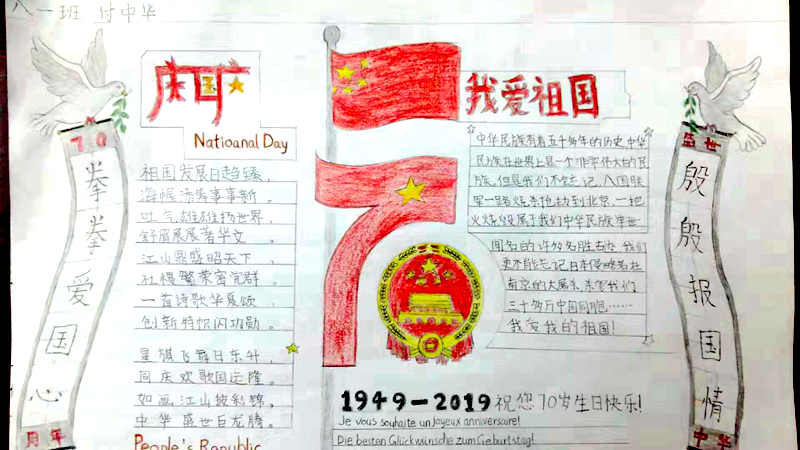 八一班 付中华
70
拳拳爱国心
周年
国庆
Natioanal Day
祖国发展日趋臻，
海幄添筹事事新。
吐气雄雄扬世界，
舒眉展展著华文。
江山鼎盛昭天下，
社稷繁荣密党群。
一首诗歌华展颂，
创新特帜闪功勋。
星旗飞舞日东升，
同庆欢歌国运隆。
如画江山披彩锦，
中华盛世巨龙腾。
People's Republic
我爱祖国
中华民族有着五千多年的历史，中华
民族在世界上是一个非常伟大的民
族，但是我们不能忘记，八国联
军一路烧杀抢掠到北京，一把
火烧毁属于我们中华民族举世
闻名的许多名胜古迹，我们
更不能忘记日本侵略者在
南京的大屠杀，杀害我们
三十多万中国同胞……
我爱我的祖国！
70
1949-2019 祝您70岁生日快乐！
Je vous souhaite un joyeux anniversaire!
Die besten Glückwünsche zum Geburtstag!
盛世
殷殷报国情
中华